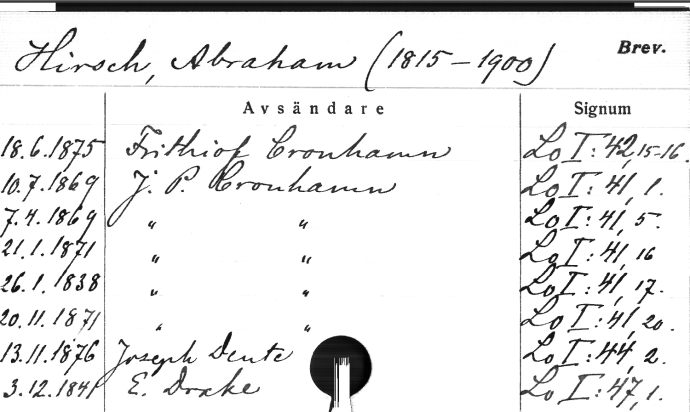 Hirsch, Abraham (1815-1900) Brev.
Avsändare Signum
18.6.1875 Frithiof Cronhamn Lo I:42,15-16.
10.7.1869 J. P. Cronhamn Lo I:41, 1.
7.4.1869 " " Lo I:41, 5.
21.1.1871 " " Lo I:41, 16
26.1.1838 " " Lo I:41, 17.
20.11.1871 " " Lo I:41, 20.
13.11.1876 Joseph Dente Lo I:44, 2.
3.12.1841 E. Drake Lo I:47, 1.